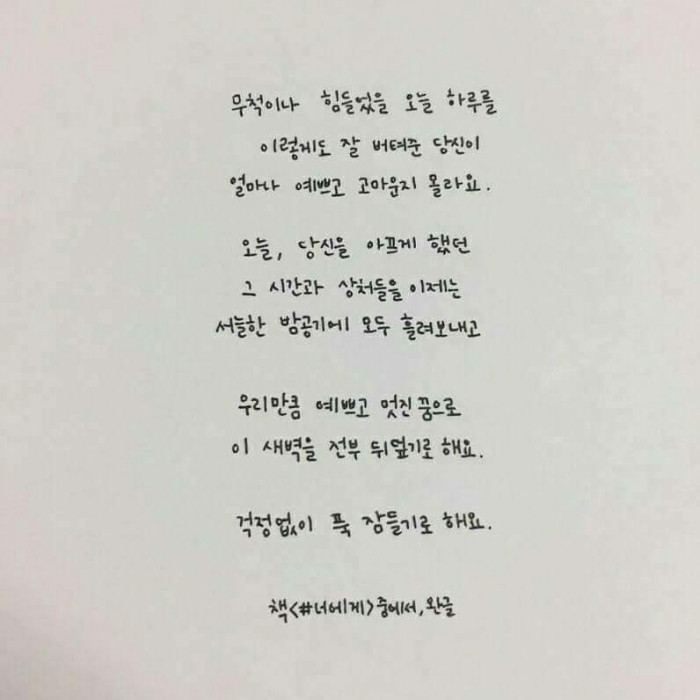 무척이나 힘들었을 오늘 하루를
이렇게도 잘 버텨준 당신이
얼마나 예쁘고 고마운지 몰라요.
오늘, 당신을 아프게 했던
그 시간과 상처들을 이제는
서늘한 밤공기에 모두 흘려보내고
우리만큼 예쁘고 멋진 꿈으로
이 새벽을 전부 뒤덮기로 해요.
걱정없이 푹 잠들기로 해요.
책<#너에게>중에서, 완글